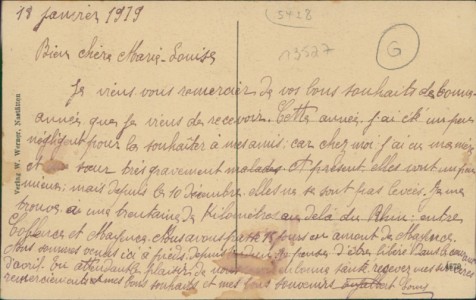 18 janvier 1919
5428
13527
G
Bien chère Marie-Louise
Je viens vous remercier de vos bons souhaits de bonne
année que je viens de recevoir. Cette année j'ai été un peu
négligent pour la souhaiter à mes amis: car chez moi j'ai eu ma mère
et sœur très gravement malades. A présent elles vont un peu
mieux; mais depuis le 10 décembre elles ne se sont pas levées. Je me
trouve à une trentaine de kilomètres au delà du Rhin; entre
Coblence et Mayence. Nous avons passé 15 jours en amont de Mayence.
Nous sommes venus ici à pieds. Je pense d'être libéré dans le courant
d'avril. En attendant le plaisir de bonne santé recevez mes sincères
remerciements mes bons souhaits et mes bons souvenirs
Verlag W. Werner, Nastätten